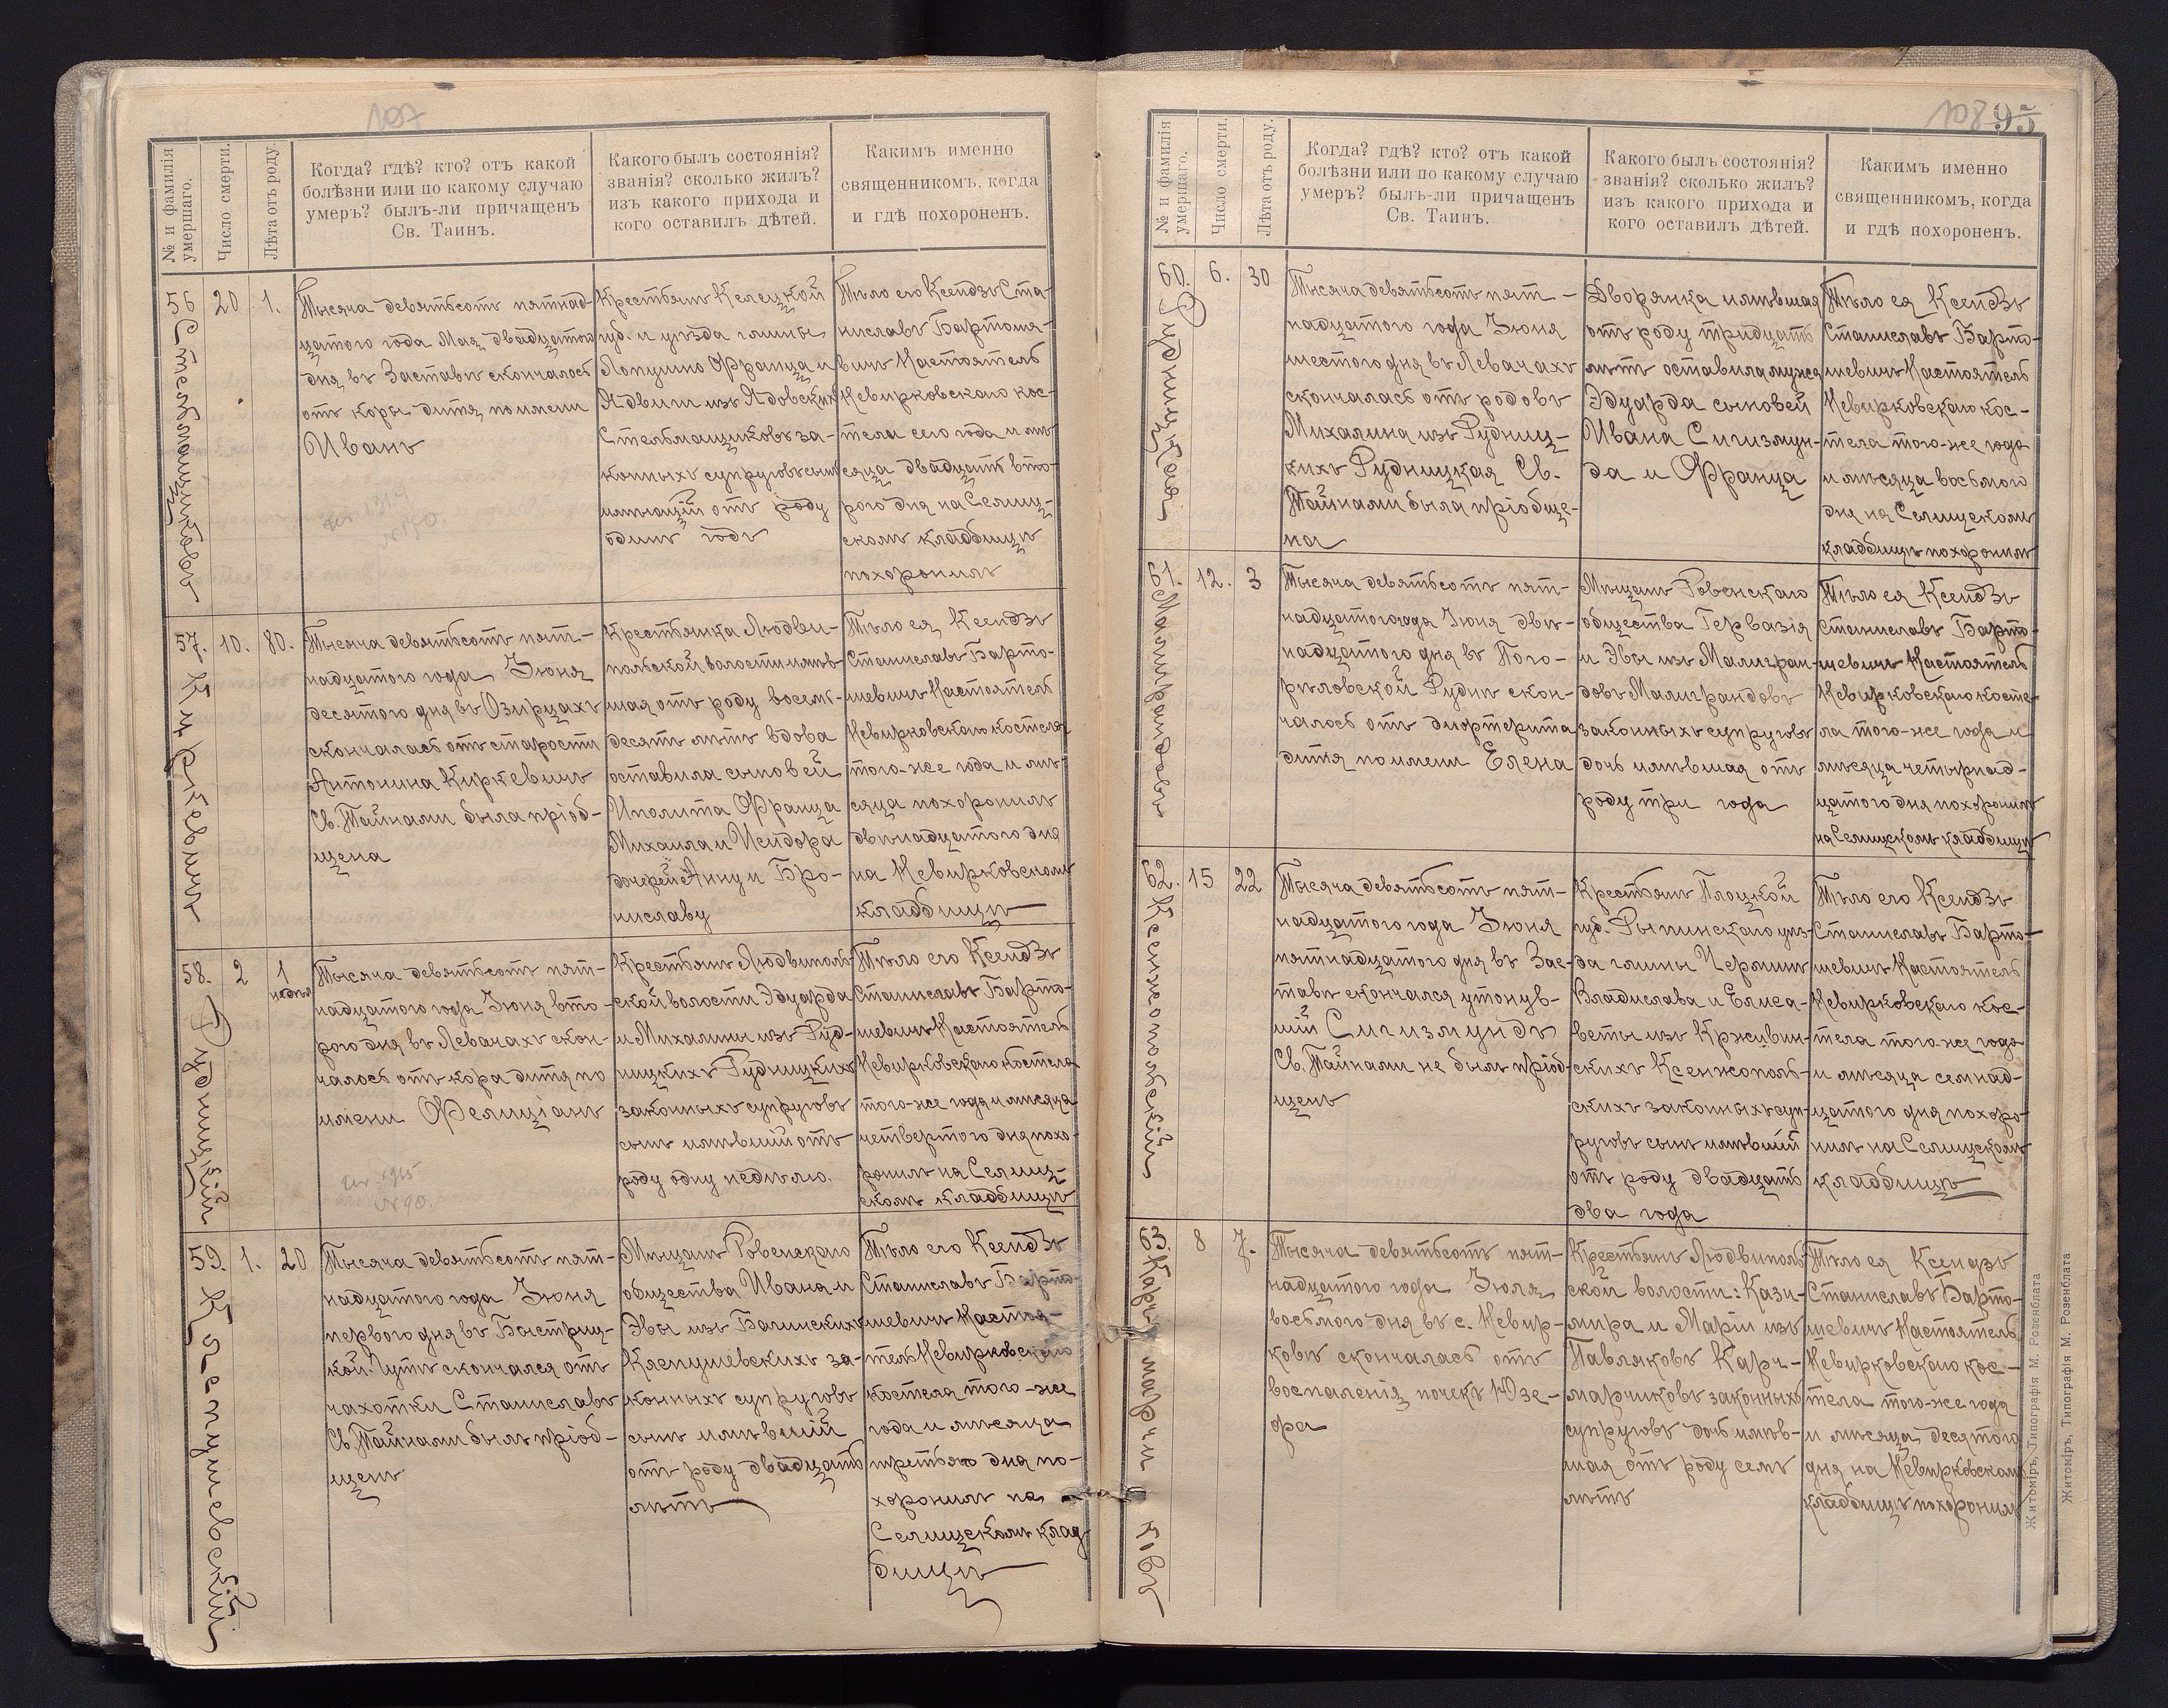 107
№ и фамилія
умершаго.
Число смерти.
Лѣта отъ роду.
Когда? гдѣ? кто? отъ какой
болѣзни или по какому случаю
умеръ? былъ-ли причащенъ
Св. Таинъ.
Какого былъ состоянія?
званія? сколько жилъ?
изъ какого прихода и
кого оставилъ дѣтей.
Какимъ именно
священникомъ, когда
и гдѣ похороненъ.
56
Стельмащиковъ
20
1.
Тысяча девятьсотъ пятнад-
цатого года Мая двадцатого
дня въ Заставѣ скончалось
отъ коры дитя по имени
Иванъ
Крестьянъ Келецкой
губ. и уѣзда гмины
Лопушно Франца и
Ядвиги изъ Ядовскихъ
Стельмащиковъ за-
конныхъ супруговъ сынъ
имѣющій отъ роду
одинъ годъ
Тѣло его Ксендзъ Ста-
ниславъ Бартоше-
вичъ Настоятель
Невирковскаго кос-
тела сего года и мѣ-
сяца двадцать вто-
рого дня на Селищ-
скомъ кладбищѣ
похоронилъ
57.
Киркевичъ
10.
80.
Тысяча девятьсотъ пят-
надцатого года Іюня
десятого дня въ Озирцахъ
скончалась отъ старости
Антонина Киркевичъ
Св. Тайнами была пріоб-
щена
Крестьянка Людви-
польской волости имѣв-
шая отъ роду восемь-
десятъ лѣтъ вдова
оставила сыновей
Иполита Франца
Михаила и Исидора
дочерей Анну и Бро-
ниславу
Тѣло ея Ксендзъ
Станиславъ Барто-
шевичъ Настоятель
Невирковскаго костела
того-же года и мѣ-
сяца похоронилъ
двѣнадцатого дня
на Невирковскомъ
кладбищѣ
58.
Рудницкій
2
1
недѣля
Тысяча девятьсотъ пят-
надцатого года Іюня вто-
рого дня въ Левачахъ скон-
чалось отъ кора дитя по
имени Фелиціанъ
Крестьянъ Людвиполь-
ской волости Эдуарда
и Михалины изъ Руд-
ницкихъ Рудницкихъ
законныхъ супруговъ
сынъ имѣвшій отъ
роду одну недѣлю.
Тѣло его Ксендзъ
Станиславъ Барто-
шевичъ Настоятель
Невирковскаго костела
того-же года и мѣсяца
четвертого дня похо-
ронилъ на Селищ-
скомъ кладбищѣ
59.
Клепушевскій
1.
20
Тысяча девятьсотъ пят-
надцатого года Іюня
первого дня въ Быстриц-
кой-Гутѣ скончался отъ
чахотки Станиславъ
Св. Тайнами былъ пріоб-
щенъ
Мѣщанъ Ровенскаго
общества Ивана и
Эвы изъ Багинскихъ
Клепушевскихъ за-
конныхъ супруговъ
сынъ имѣвшій
отъ роду двадцать
лѣтъ
Тѣло его Ксендзъ
Станиславъ Барто-
шевичъ Настоя-
тель Невирковскаго
костела того-же
года и мѣсяца
третьяго дня по-
хоронилъ на
Селищскомъ клад-
бищѣ
108
95
№ и фамилія
умершаго.
Число смерти.
Лѣта отъ роду.
Когда? гдѣ? кто? отъ какой
болѣзни или по какому случаю
умеръ? былъ-ли причащенъ
Св. Таинъ.
Какого былъ состоянія?
званія? сколько жилъ?
изъ какого прихода и
кого оставилъ дѣтей.
Какимъ именно
священникомъ, когда
и гдѣ похороненъ.
60.
Рудницкая
6.
30
Тысяча девятьсотъ пят-
надцатого года Іюня
шестого дня въ Левачахъ
скончалась отъ родовъ
Михалина изъ Рудниц-
кихъ Рудницкая Св.
Тайнами была пріобще-
на
Дворянка имѣвшая
отъ роду тридцать
лѣтъ оставила мужа
Эдуарда сыновей
Ивана Сигизмун-
да и Франца
Тѣло ея Ксендзъ
Станиславъ Барто-
шевичъ Настоятель
Невирковскаго кос-
тела того-же года
и мѣсяца восьмого
дня на Селищскомъ
кладбищѣ похоронилъ
61.
Малиграндовъ
12.
3
Тысяча девятьсотъ пят-
надцатого года Іюня двѣ-
надцатого дня въ Пого-
рѣловской Руднѣ скон-
чалось отъ дифтерита
дитя по имени Елена
Мѣщанъ Ровенскаго
общества Гервазія
и Эвы изъ Малигран-
довъ Малиграндовъ
законныхъ супруговъ
дочь имѣвшая отъ
роду три года
Тѣло ея Ксендзъ
Станиславъ Барто-
шевичъ Настоятель
Невирковскаго косте-
ла того-же года и
мѣсяца четырнад-
цатого дня похоронилъ
на Селищскомъ кладбищѣ
62.
Ксенжопольскій
15
22
Тысяча девятьсотъ пят-
надцатого года Іюня
пятнадцатого дня въ Зас-
тавѣ скончался утонув-
шій Сигизмундъ
Св. Тайнами не былъ пріоб-
щенъ
Крестьянъ Плоцкой
губ. Рыпинскаго уѣз-
да гмины Черминъ
Владислава и Елиса-
веты изъ Крживин-
скихъ Ксенжополь-
скихъ законныхъ суп-
руговъ сынъ имѣвшій
отъ роду двадцать
два года
Тѣло его Ксендзъ
Станиславъ Барто-
шевичъ Настоятель
Невирковскаго кос-
тела того-же года
и мѣсяца семнад-
цатого дня похоро-
нилъ на Селищскомъ
кладбищѣ
63.
Карчмарчиковъ
8
7.
Тысяча девятьсотъ пят-
надцатого года Іюля
восьмого дня въ с. Невир-
ковѣ скончалась отъ
воспаленія почекъ Юзе-
фа
Крестьянъ Людвиполь-
ской волости: Кази-
мира и Маріи изъ
Павляковъ Карч-
марчиковъ законныхъ
супруговъ дочь имѣв-
шая отъ роду семь
лѣтъ
Тѣло ея Ксендзъ
Станиславъ Барто-
шевичъ Настоятель
Невирковскаго кос-
тела того-же года
и мѣсяца десятого
дня на Невирковскомъ
кладбищѣ похоронилъ
Житоміръ, Типографія М. Розенблата
Житоміръ, Типографія М. Розенблата